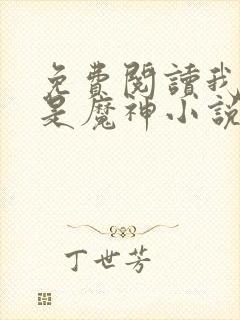 免費閱讀我
是魔神小說
丁世芳